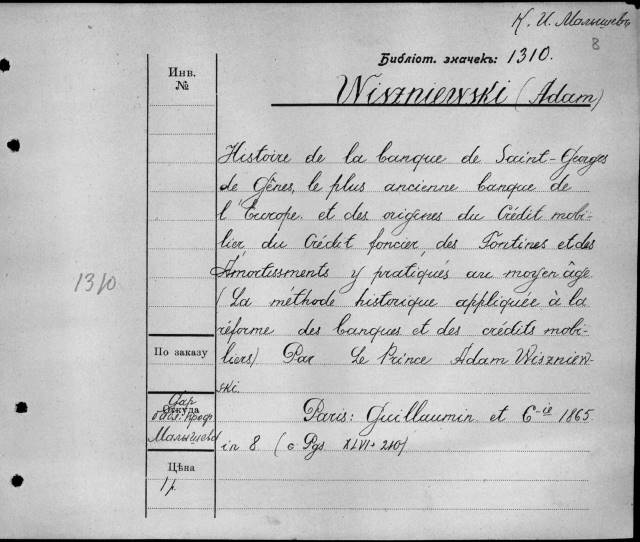 К. И. Малышевъ
8
Библіот. значекъ: 1310.
Инв.
№
Wiszniewski (Adam)
Histoire de la banque de Saint-Georges
de Gênes, le plus ancienne banque de
l'Europe. et des origines du Crédit mobi-
lier du Crédit foncier, des Tontines et des
Amortissments y pratiqués au moyen âge
1310
(La méthode historique appliquée à la
réforme des banques et des crédits mobi-
По заказу
liers) Par Le Prince Adam Wiszniew-
ski.
Дар
Откуда
библ. проф.
Малышева
Paris: Guillaumin et C-ie 1865.
in 8 (с Pgs XLVI + 210)
Цѣна
1 р.